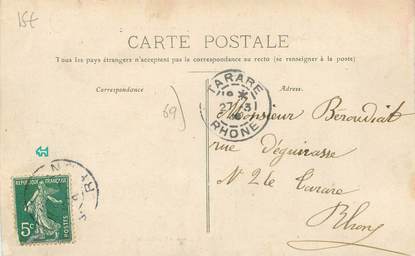 15t
CARTE POSTALE
Tous les pays étrangers n'acceptent pas la correspondance au recto (se renseigner à la poste)
Correspondance
Adresse.
69)
TARARE
27 3
RHONE
Monsieur Béroudiat
rue Déguirasse
N 2 le Tarare
Rhone
REPUBLIQUE FRANÇAISE
5c
POSTES